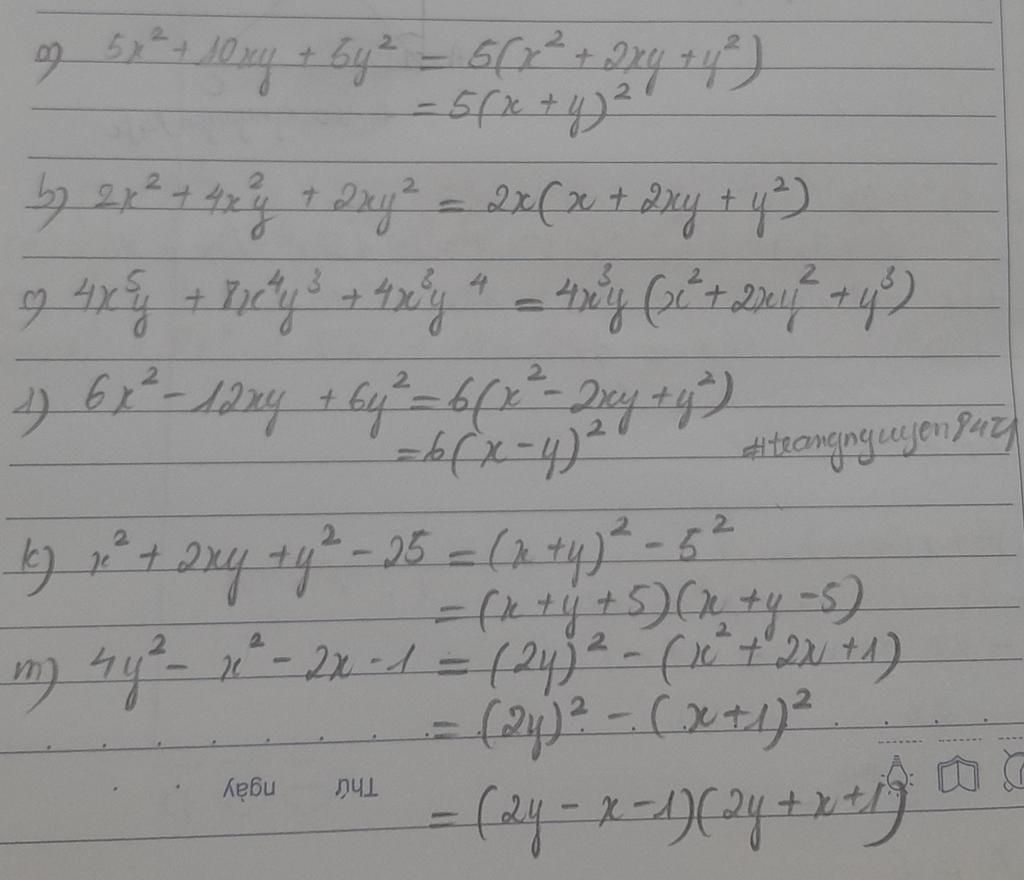 a) 5x² + 10xy + 5y² = 5(x² + 2xy + y²)
= 5(x + y)²
b) 2x² + 4x²y + 2xy² = 2x(x + 2xy + y²)
c) 4x⁵y + 8x⁴y³ + 4x³y⁴ = 4x³y(x² + 2xy² + y³)
1) 6x² - 12xy + 6y² = 6(x² - 2xy + y²)
= 6(x - y)²
k) x² + 2xy + y² - 25 = (x + y)² - 5²
= (x + y + 5)(x + y - 5)
m) 4y² - x² - 2x - 1 = (2y)² - (x² + 2x + 1)
= (2y)² - (x + 1)²
Thứ ngày
= (2y - x - 1)(2y + x + 1)